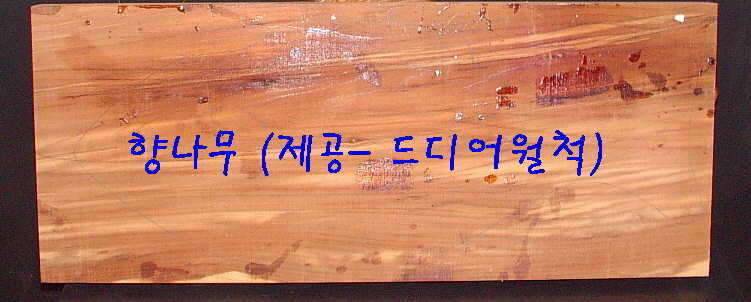 향나무 (제공- 드디어월척)